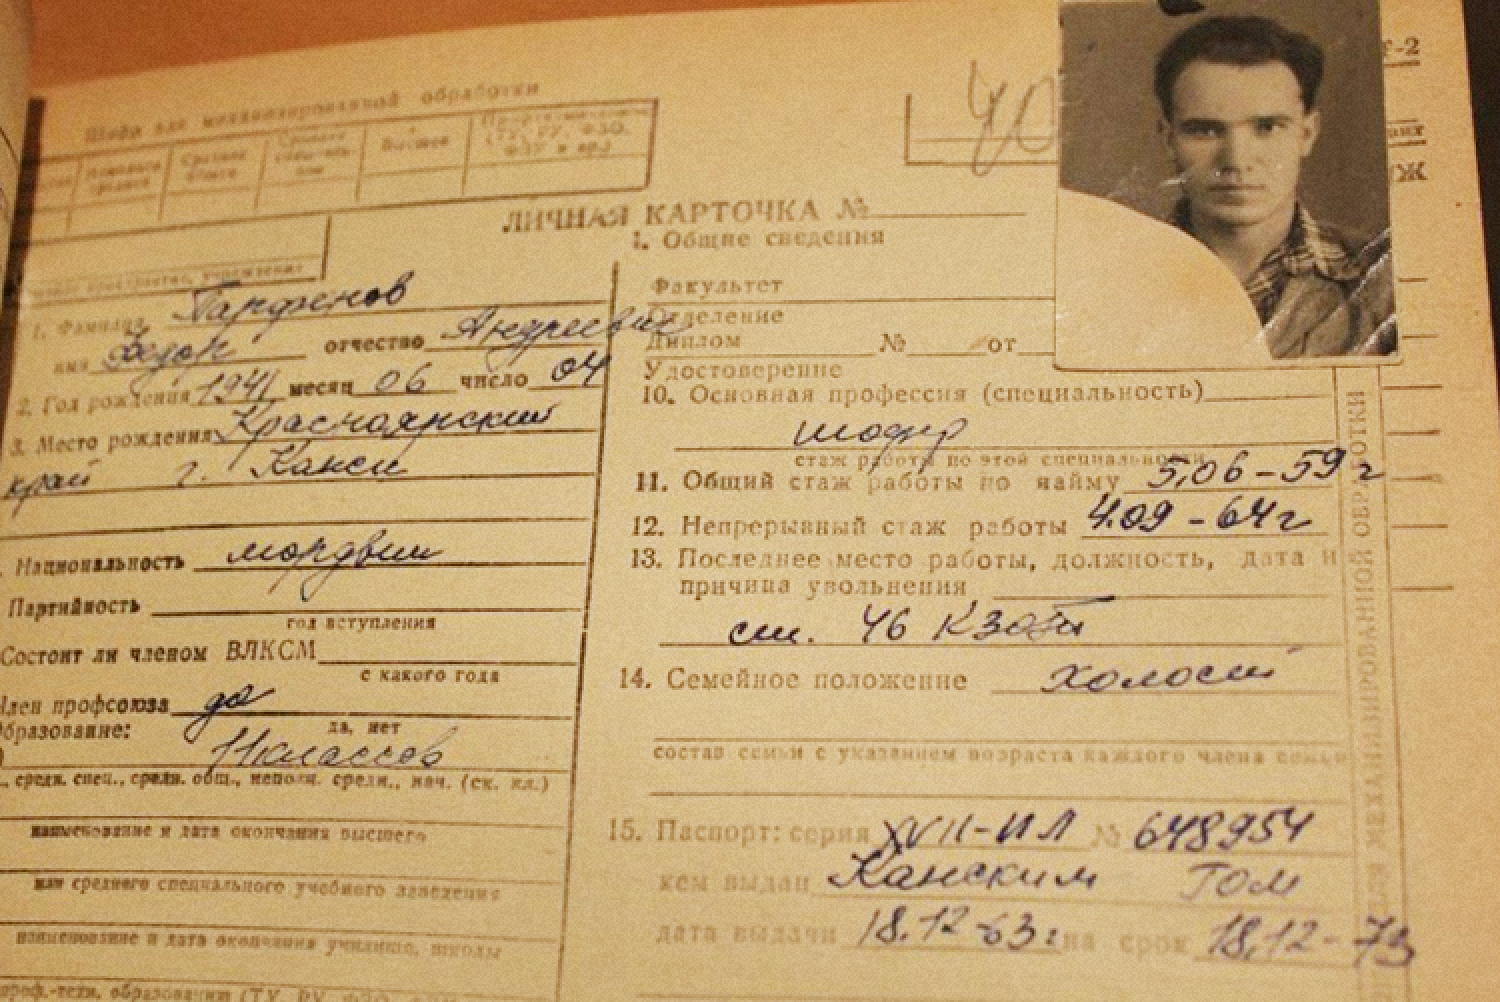 Шифр для механизированной обработки
Среднее общее
Высшее
(ТУ, РУ, ФЗО,
ФЗУ и др.)
40
Т-2
УЖ
ЛИЧНАЯ КАРТОЧКА №
1. Общие сведения
1. Фамилия Парфенов
имя Федор отчество Андреевич
2. Год рождения 1941 месяц 06 число 04
3. Место рождения Красноярский
край г. Канск
Национальность мордвин
Партийность
год вступления
Состоит ли членом ВЛКСМ
с какого года
Член профсоюза да
да, нет
Образование:
11 классов
средн. спец., средн. общ., неполн. средн., нач. (ск. кл.)
наименование и дата окончания высшего
или среднего специального учебного заведения
наименование и дата окончания училища, школы
проф.-техн. образования (ТУ, РУ, ФЗО,
Факультет
Отделение
Диплом № от
Удостоверение
10. Основная профессия (специальность)
шофер
стаж работы по этой специальности
11. Общий стаж работы по найму 5.06-59г
12. Непрерывный стаж работы 4.09-64г
13. Последнее место работы, должность, дата и
причина увольнения
ст. 46 КЗОТ
14. Семейное положение холост
состав семьи с указанием возраста каждого члена семьи
15. Паспорт: серия XVII-ИЛ № 648954
кем выдан Канским ГОМ
дата выдачи 18.12-63г на срок 18.12-73
МЕХАНИЗИРОВАННОЙ ОБРАБОТКИ